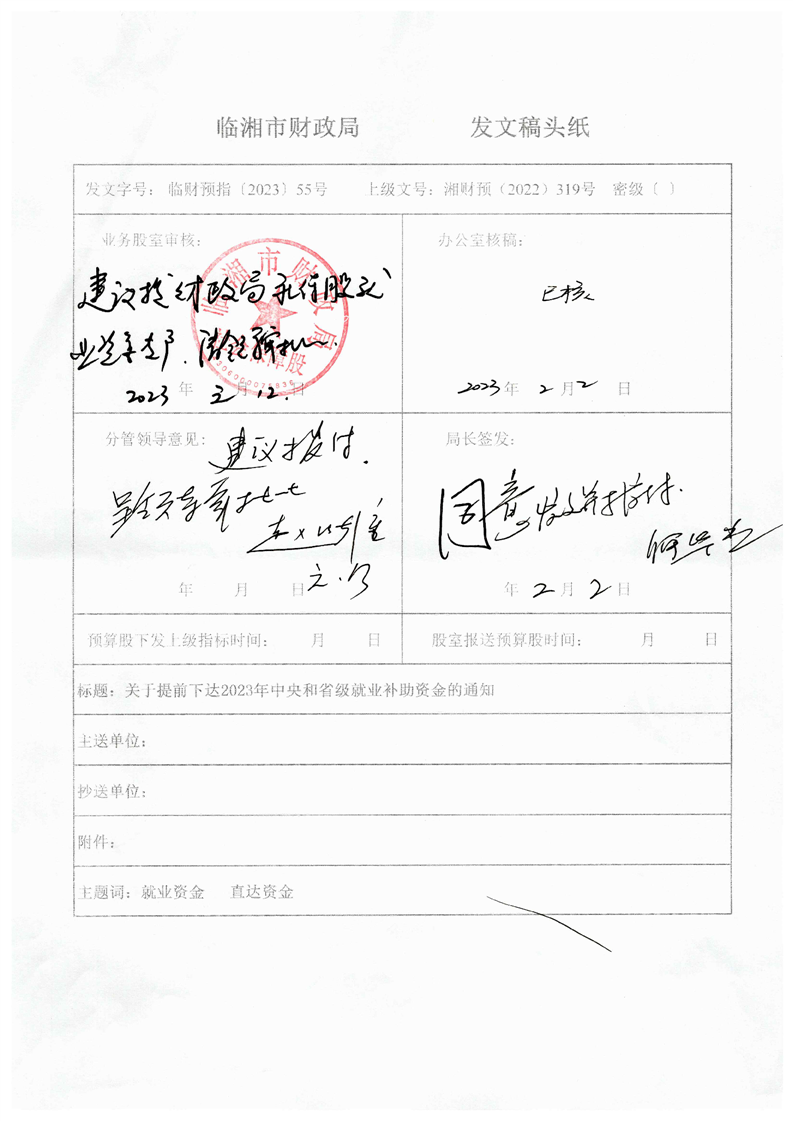 临湘市财政局 发文稿头纸
发文字号： 临财预指〔2023〕55号 上级文号：湘财预（2022）319号 密级〔 〕
业务股室审核：
建议拨财政局社保股就
业专户
临湘市财政局
社会保障股
2023 年 月 12. 日
办公室核稿：
已核
2023 年 2 月 2 日
分管领导意见：
建议拨付.
年 月 日
局长签发：
同意发文并拨付.
年 2 月 2 日
预算股下发上级指标时间： 月 日
股室报送预算股时间： 月 日
标题：关于提前下达2023年中央和省级就业补助资金的通知
主送单位：
抄送单位：
附件：
主题词：就业资金 直达资金